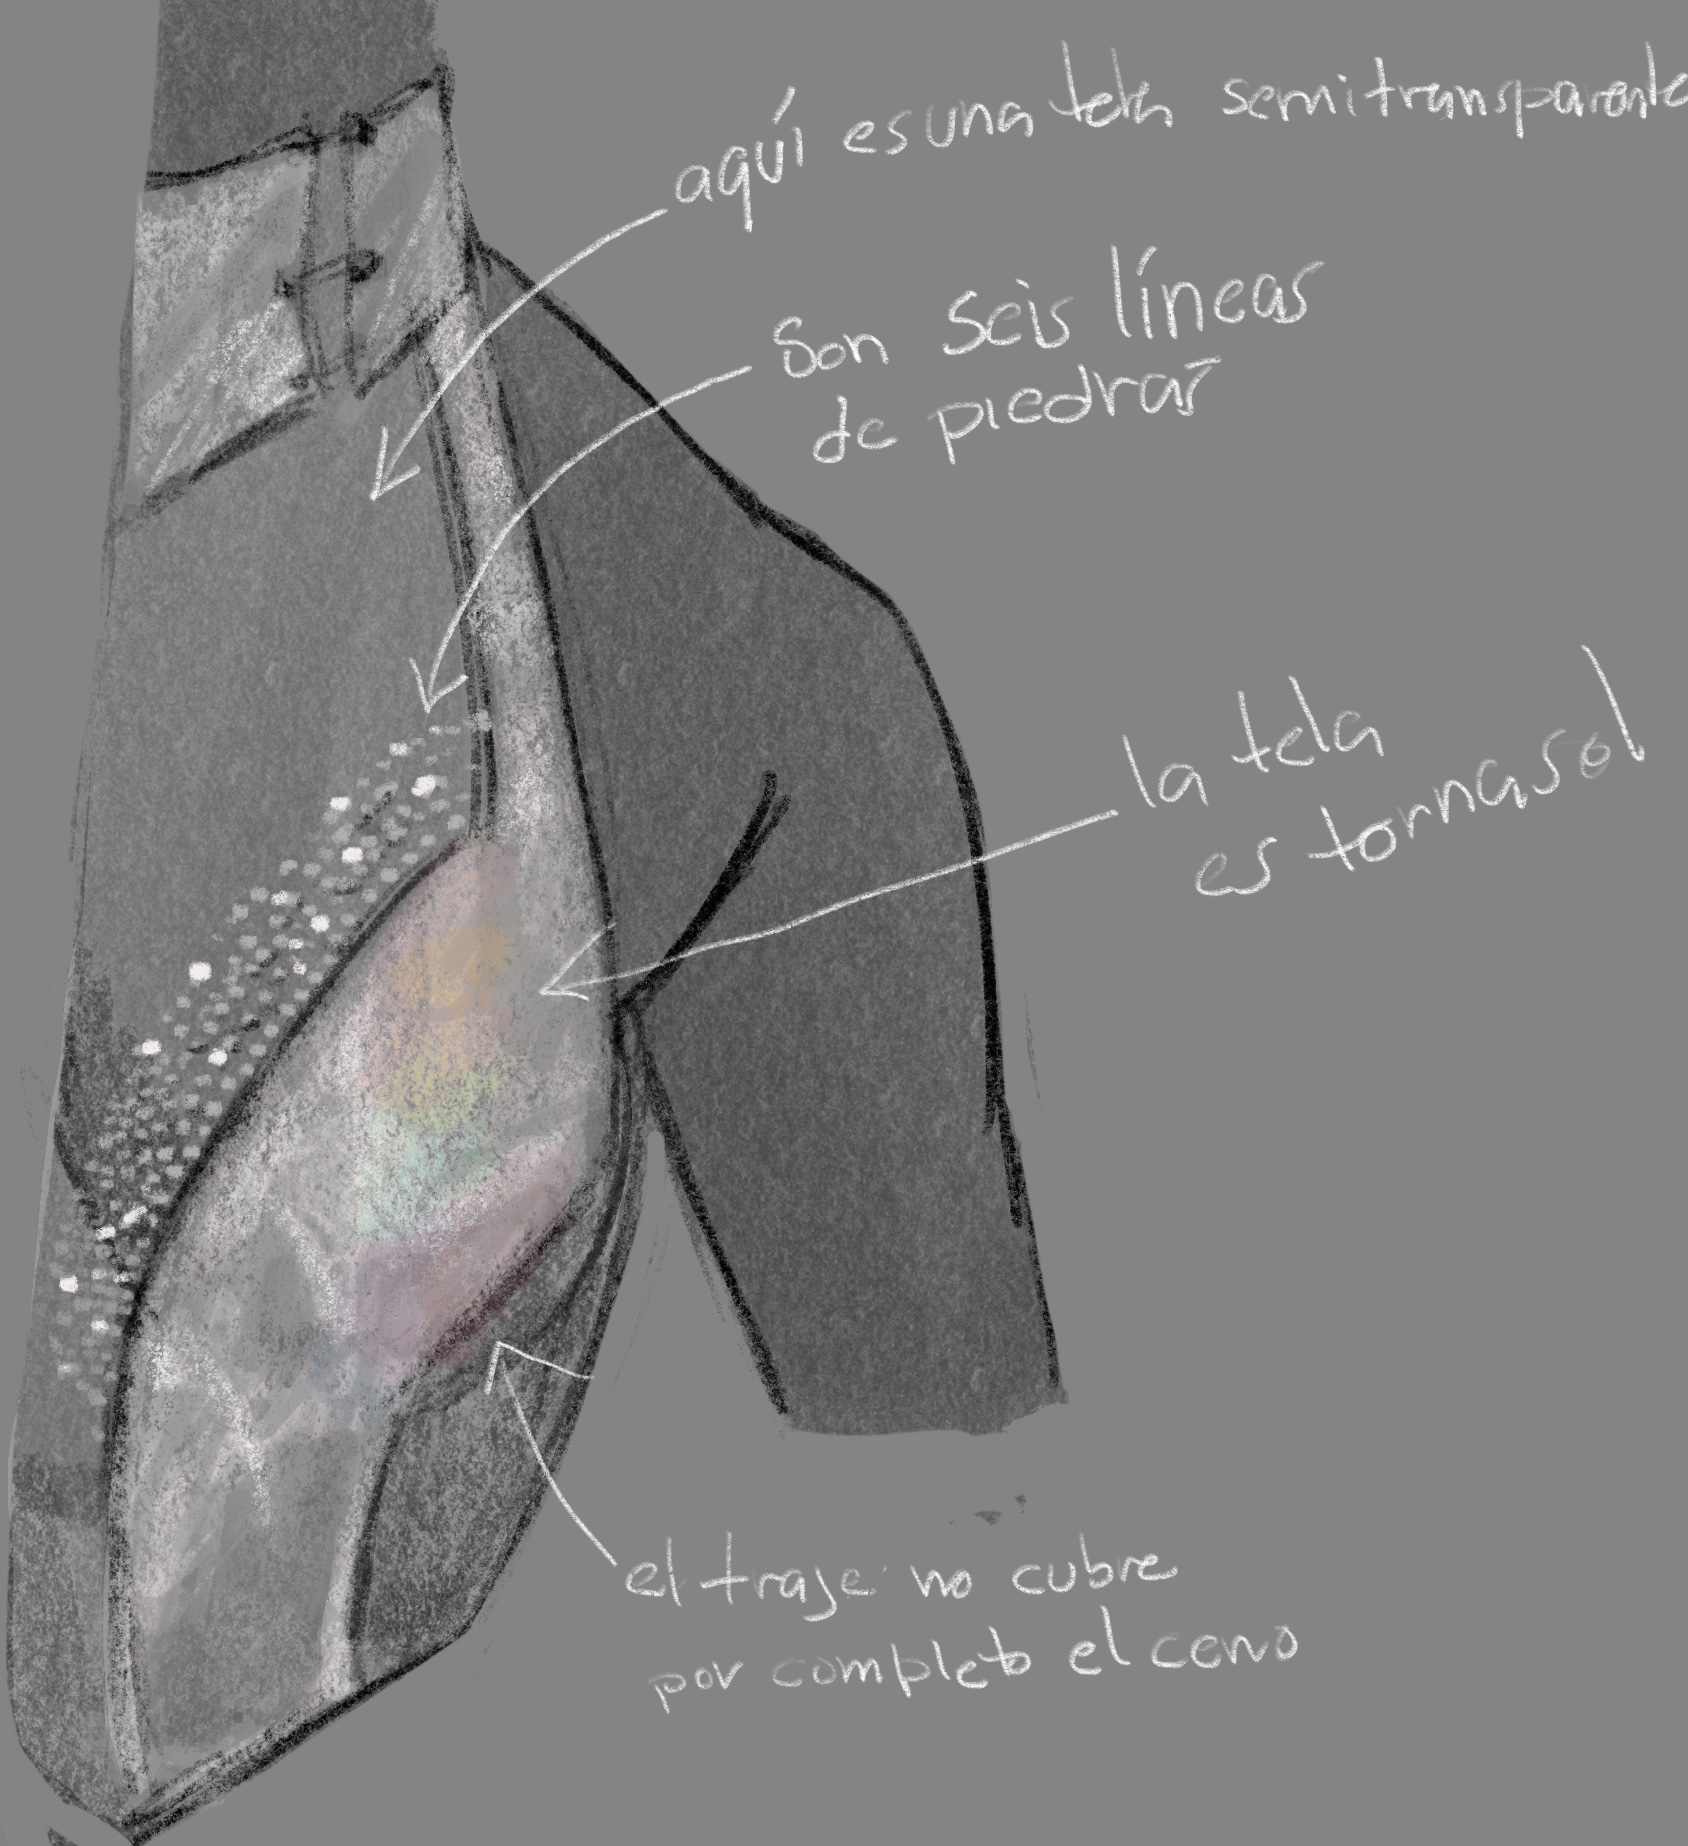 aquí es una tela semitransparente
Son seis líneas
de piedras
la tela
es tornasol
el traje no cubre
por completo el ceno